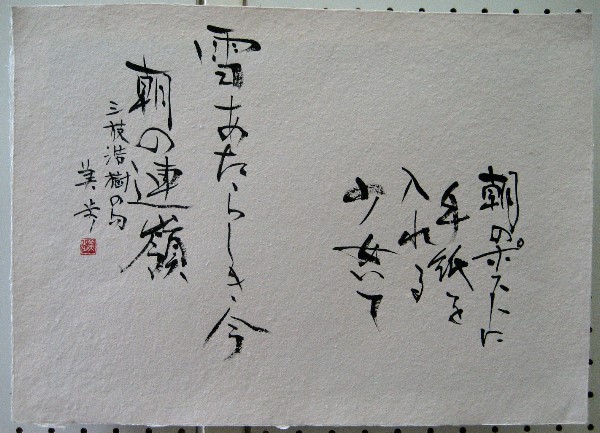 朝のポストに
手紙を
入れる
少女いて
雪あたらしき今
朝の連嶺
三枝浩樹の句
美歩